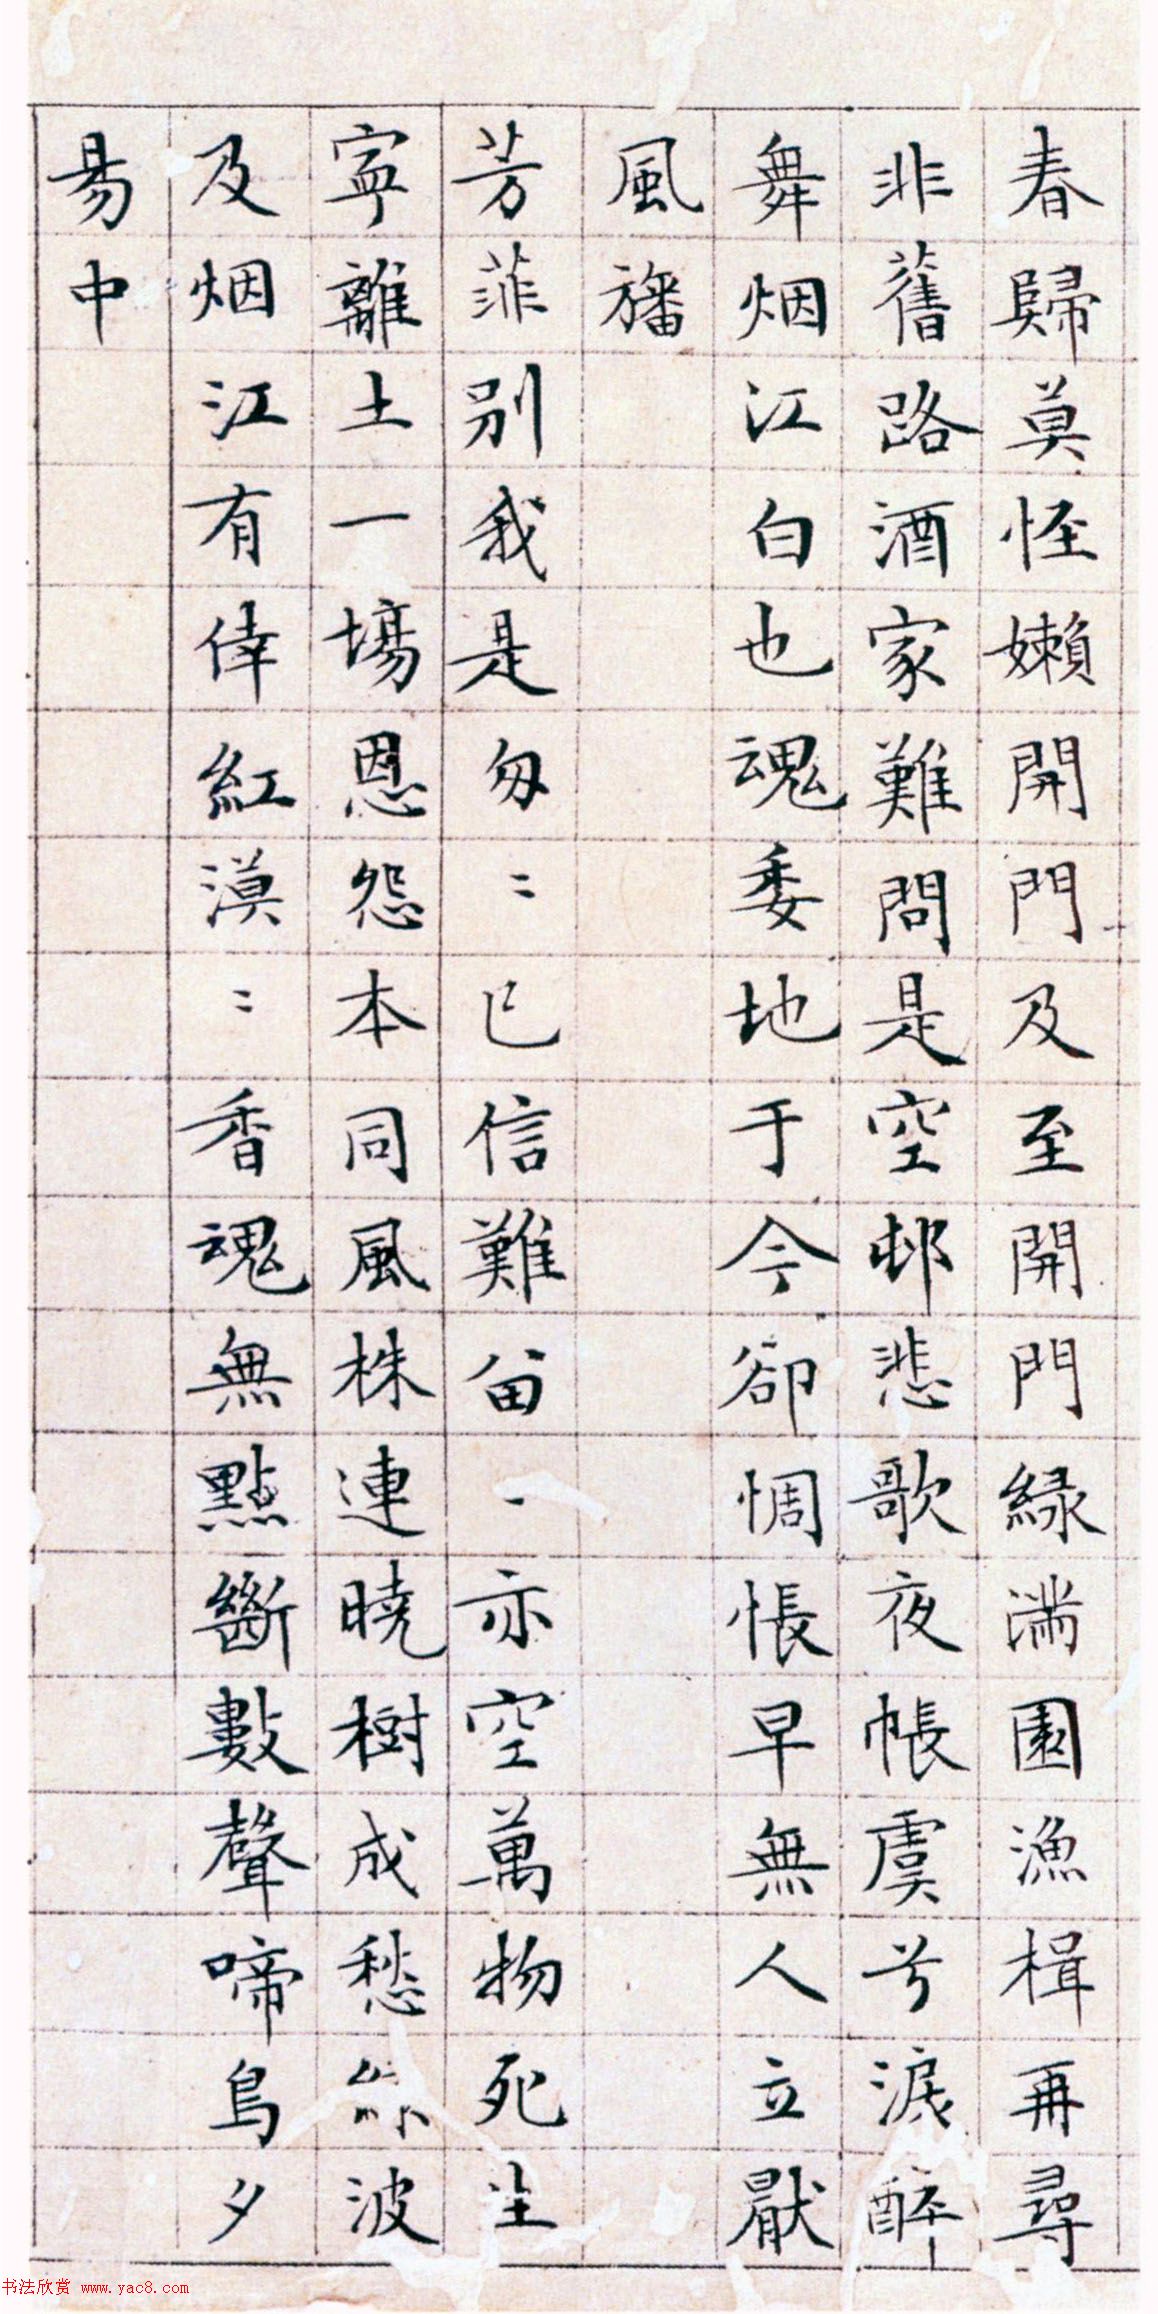 春歸莫怪嬾開門及至開門緑滿園漁楫再尋
非舊路酒家難問是空邨悲歌夜帳虞兮淚醉
舞烟江白也魂委地于今卻惆悵早無人立厭
風旛
芳菲别我是匆〻已信難畱一亦空萬物死生
寧離土一場恩怨本同風株連曉樹成愁綠波
及烟江有倖紅漠〻香魂無點斷數聲啼鳥夕
昜中
书法欣赏 www.yac8.com